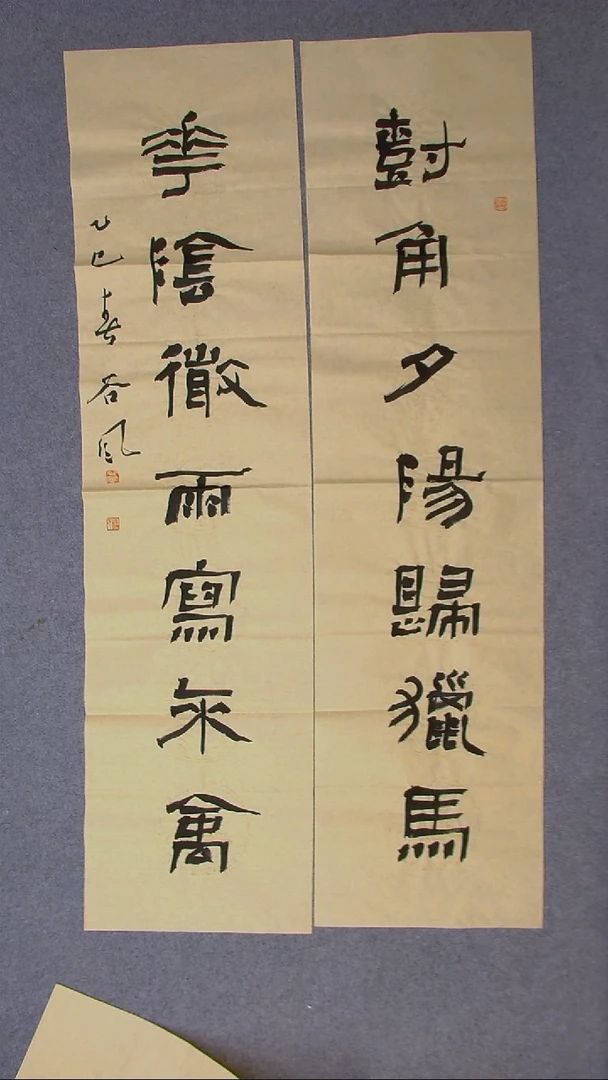 對角夕陽歸獵馬
華陰微雨寫來禽
乙巳春谷風